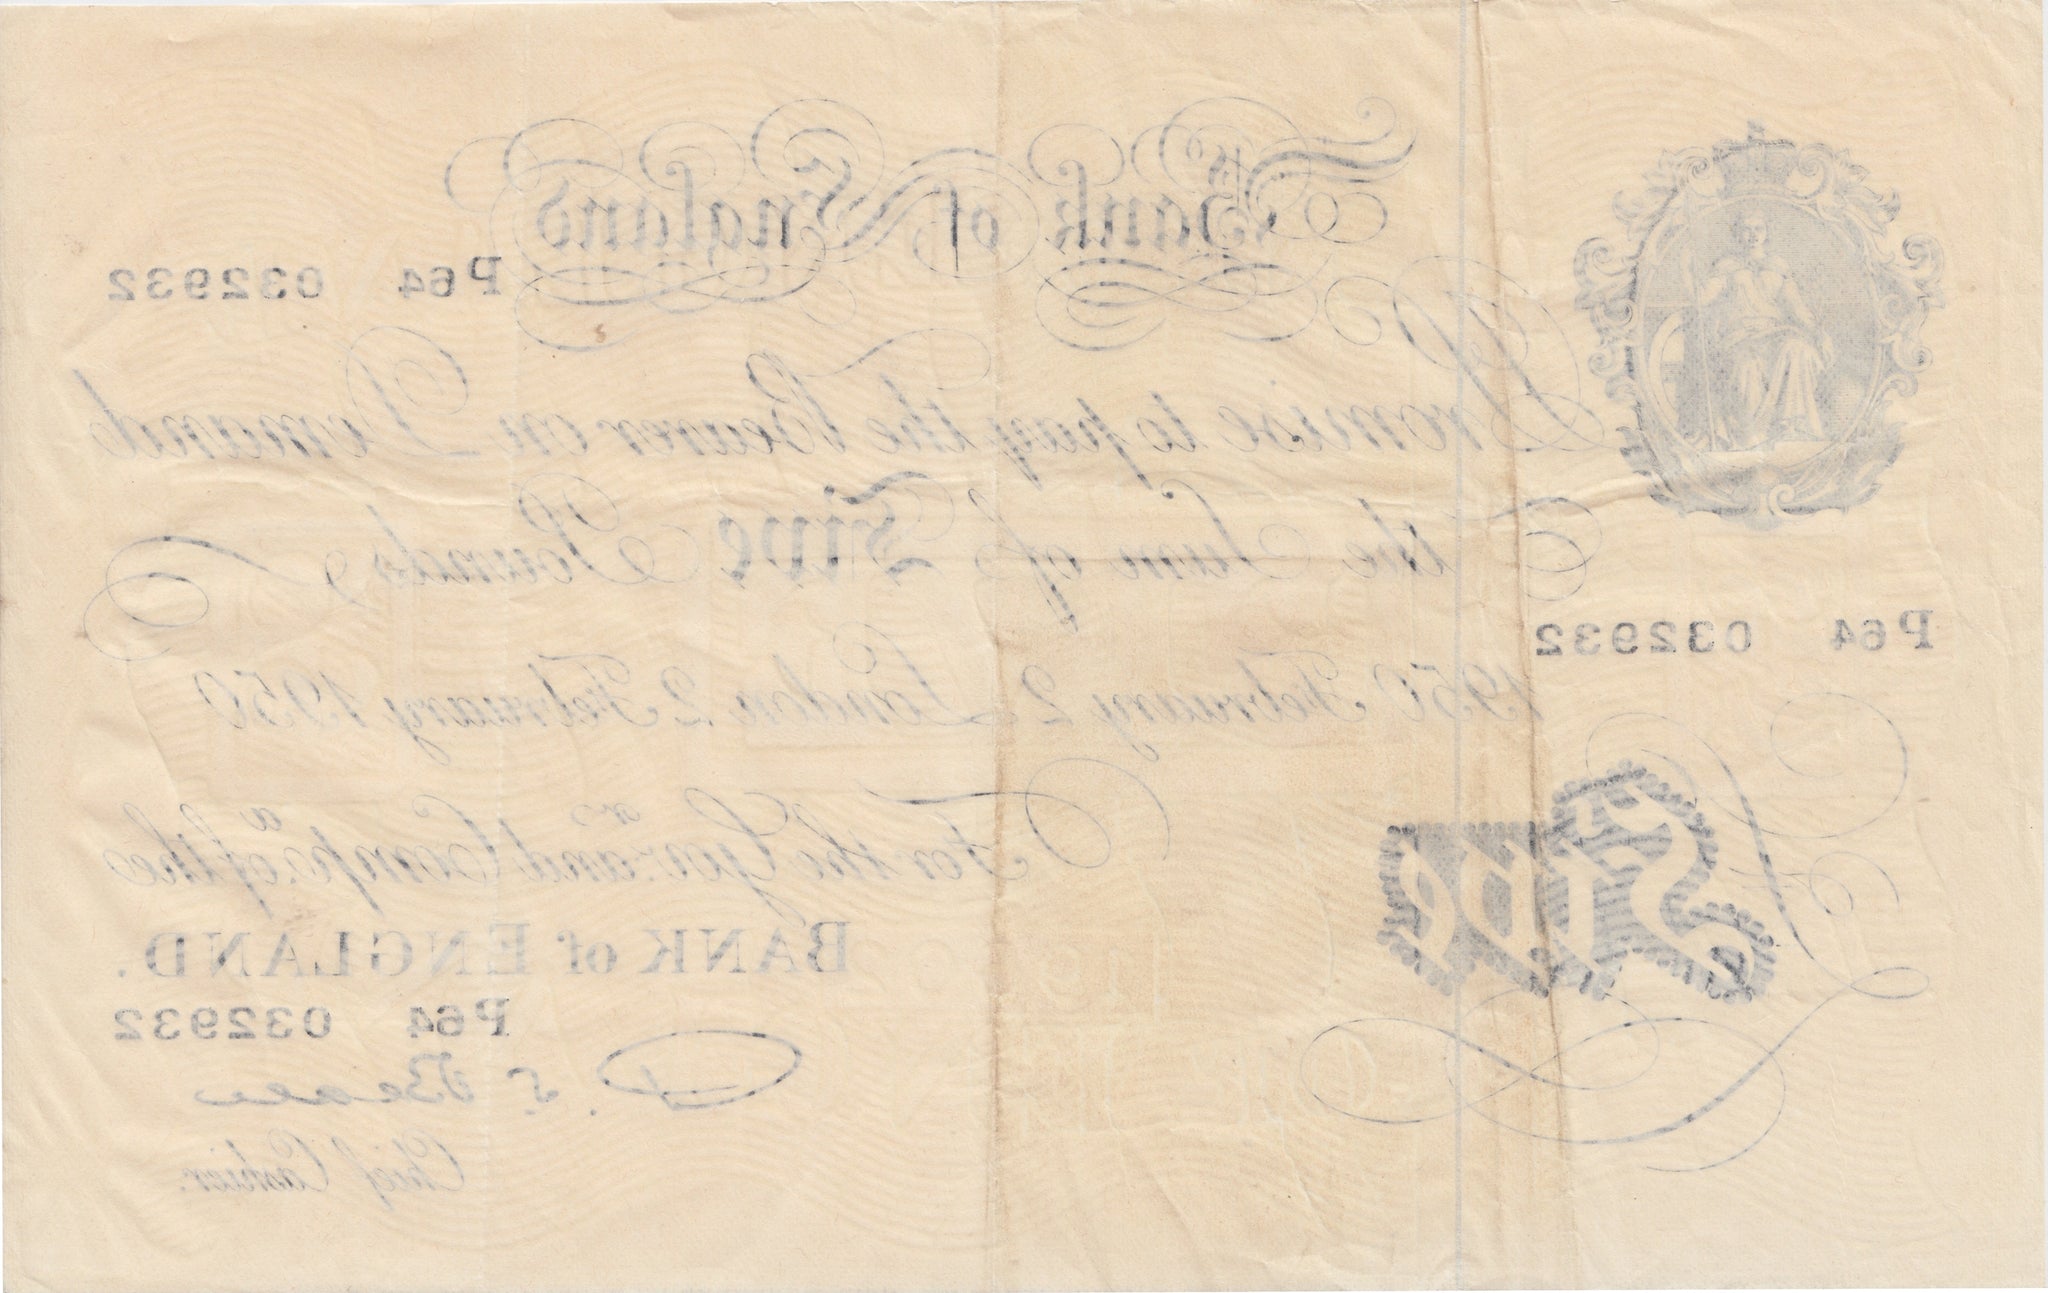 Bank of England
P64 032932
Promise to pay the Bearer on Demand
the Sum of Five Pounds
P64 032932
1950 February 2 London 2 February 1950
For the Gov:r and Comp:a of the
BANK of ENGLAND.
Five
P64 032932
P. S. Beale
Chief Cashier.